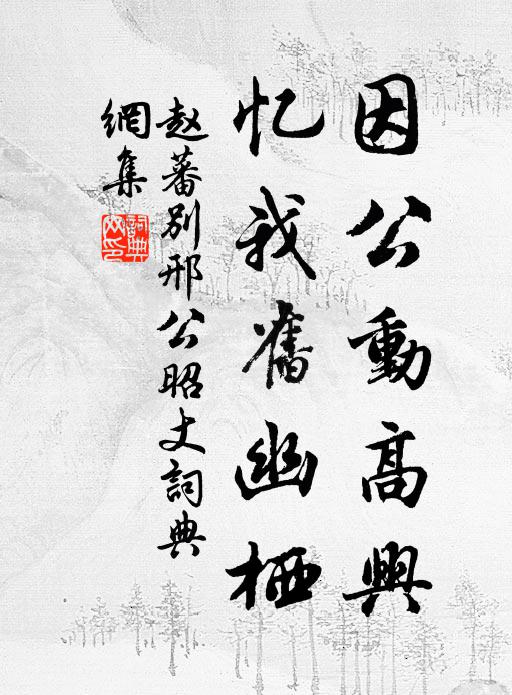 因公動高興
忆我舊幽栖
赵蕃别邢公昭丈詞典
網集
詞典
网印